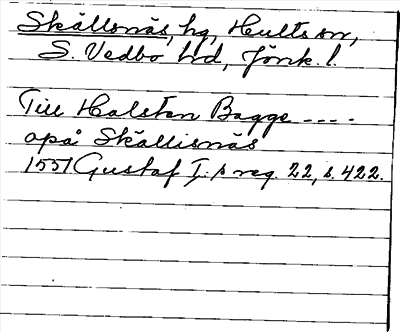 Skällsnäs, hg, Hults sn,
S. Vedbo hd, Jönk. l.
Till Halsten Bagge ----
opå Skällisnäs
1551 Gustaf I:s reg. 22, s. 422.